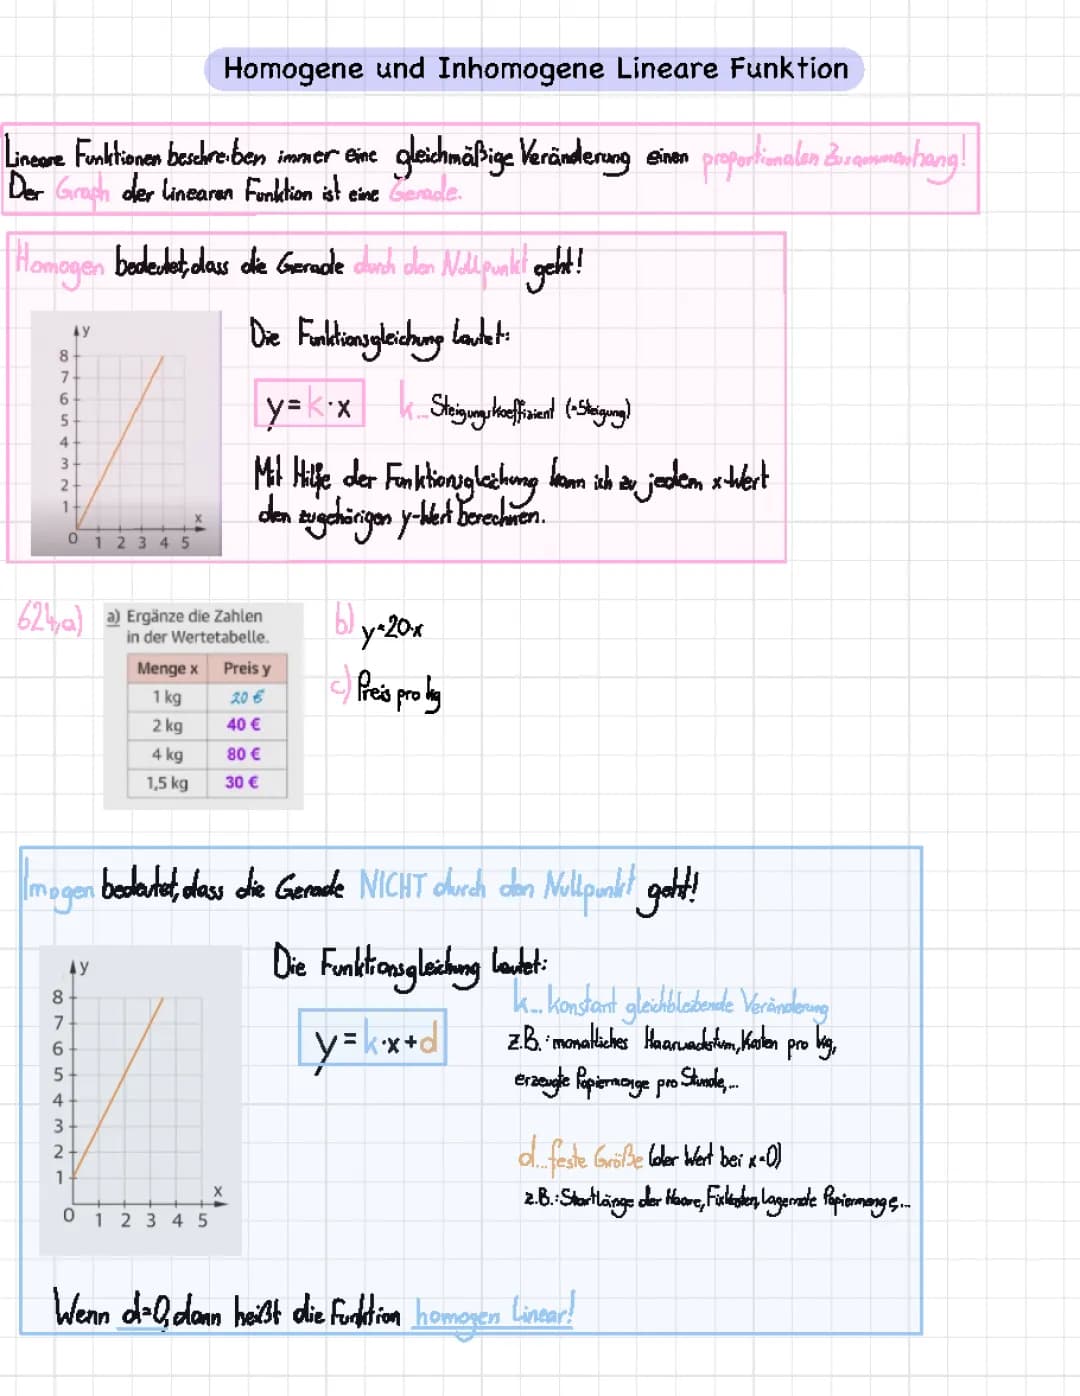 Homogene und Inhomogene Lineare Funktion
Lineare Funktionen beschreiben immer eine gleichmäßige Veränderung einen proportionalen Zusammenhang!
Der Graph der linearen Funktion ist eine Gerade.
Homogen bedeutet, dass die Gerade durch den Nullpunkt geht!
y
8
7
6
5
4
3
2
1
x
0 1 2 3 4 5
Die Funktionsgleichung lautet:
y=k·x k... Steigungskoeffizient (=Steigung)
Mit Hilfe der Funktionsgleichung kann ich zu jedem x-Wert
den zugehörigen y-Wert berechnen.
624,a)
a) Ergänze die Zahlen
in der Wertetabelle.
Menge x Preis y
1 kg 20 €
2 kg 40 €
4 kg 80 €
1,5 kg 30 €
b) y=20·x
c) Preis pro kg
Imogen bedeutet, dass die Gerade NICHT durch den Nullpunkt geht!
y
8
7
6
5
4
3
2
1
x
0 1 2 3 4 5
Die Funktionsgleichung lautet:
y=k·x+d
k... konstant gleichbleibende Veränderung
z.B.: monatliches Haarwachstum, Kosten pro kg,
erzeugte Papiermenge pro Stunde,...
d...feste Größe (der Wert bei x=0)
z.B.: Startlänge der Haare, Fixkosten, lagernde Papiermenge...
Wenn d=0, dann heißt die Funktion homogen linear!